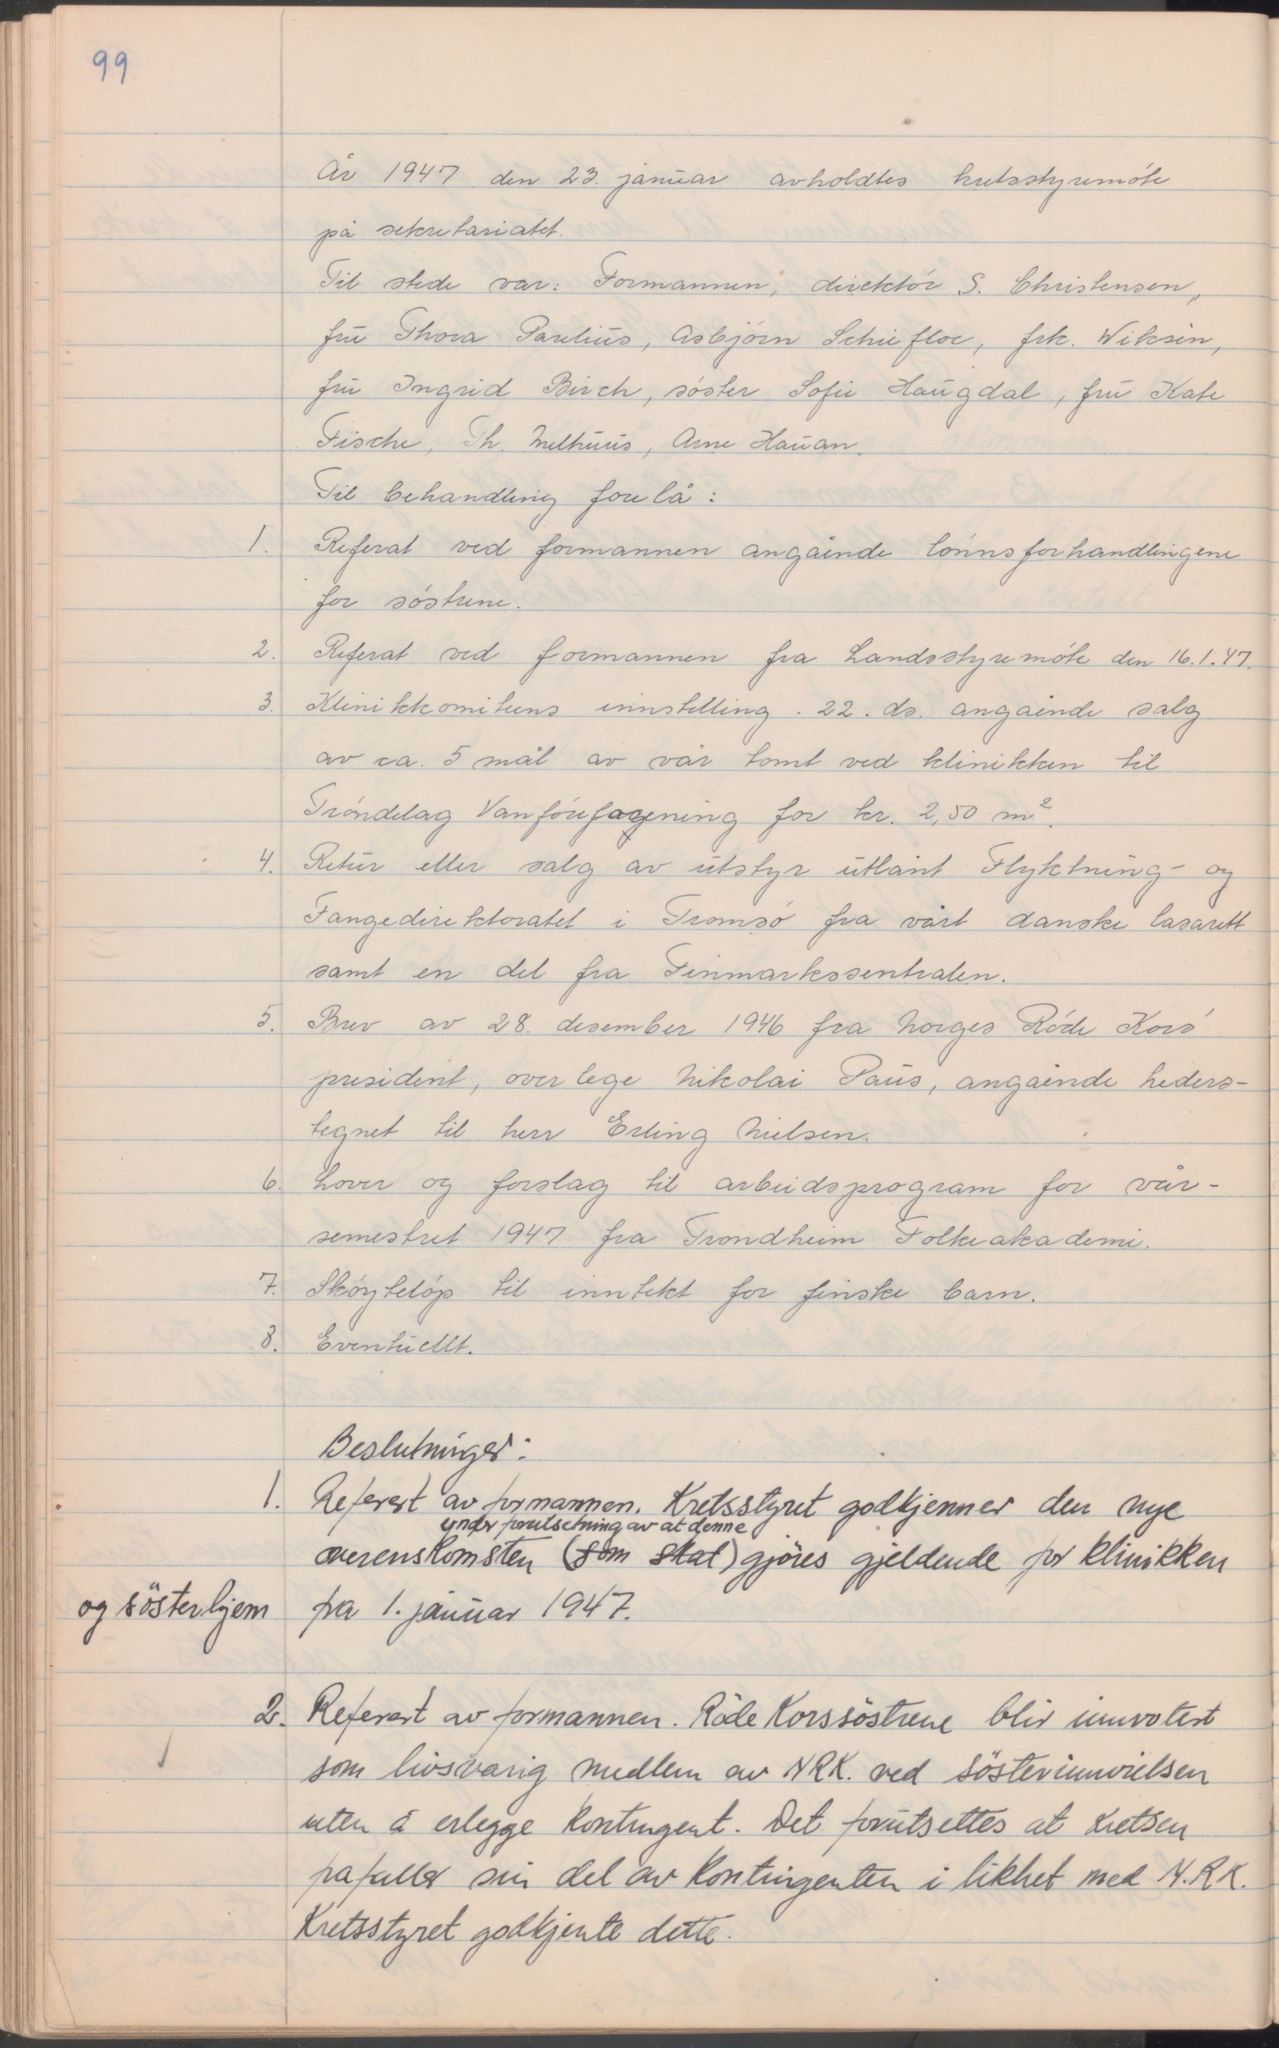 99
År 1947 den 23. januar avholdtes kretsstyremöte
på sekretariatet.
Til stede var: Formannen, direktör S. Christensen,
fru Thora Parelius, Asbjörn Schiefloe, frk. Wiksén,
fru Ingrid Birch, söster Sofie Haugdal, fru Kate
Fische, Th. Melhuus, Arne Hauan.
Til behandling forelå:
1. Referat ved formannen angående lönnsforhandlingene
for söstrene.
2. Referat ved formannen fra Landsstyremöte den 16.1.47.
3. Klinikkomiteens innstilling 22. ds. angående salg
av ca. 5 mål av vår tomt ved klinikken til
Tröndelag Vanförefagening for kr. 2,50 m².
4. Retur eller salg av utstyr utlånt Flyktning- og
Fangedirektoratet i Tromsö fra vårt danske lasarett
samt en del fra Finmarkssentralen.
5. Brev av 28. desember 1946 fra Norges Röde Kors'
president, overlege Nikolai Paus, angående heders-
tegnet til herr Erling Nielsen.
6. Lover og forslag til arbeidsprogram for vår-
semestret 1947 fra Trondheim Folkeakademi.
7. Sköyteløp til inntekt for finske barn.
8. Eventuellt.
Beslutninger:
1. Referert av formannen. Kretsstyret godkjenner den nye
under forutsetning av at denne
overenskomsten (som skal) gjöres gjeldende for klinikken
og sösterhjem fra 1. januar 1947.
2. Referert av formannen. Röde Korssöstrene blir innvotert
som livsvarig medlem av NRK. ved sösterinnvielsen
uten å erlegge kontingent. Det forutsettes at kretsen
frafaller sin del av kontingenten i likhet med N.R.K.
Kretsstyret godkjente dette.